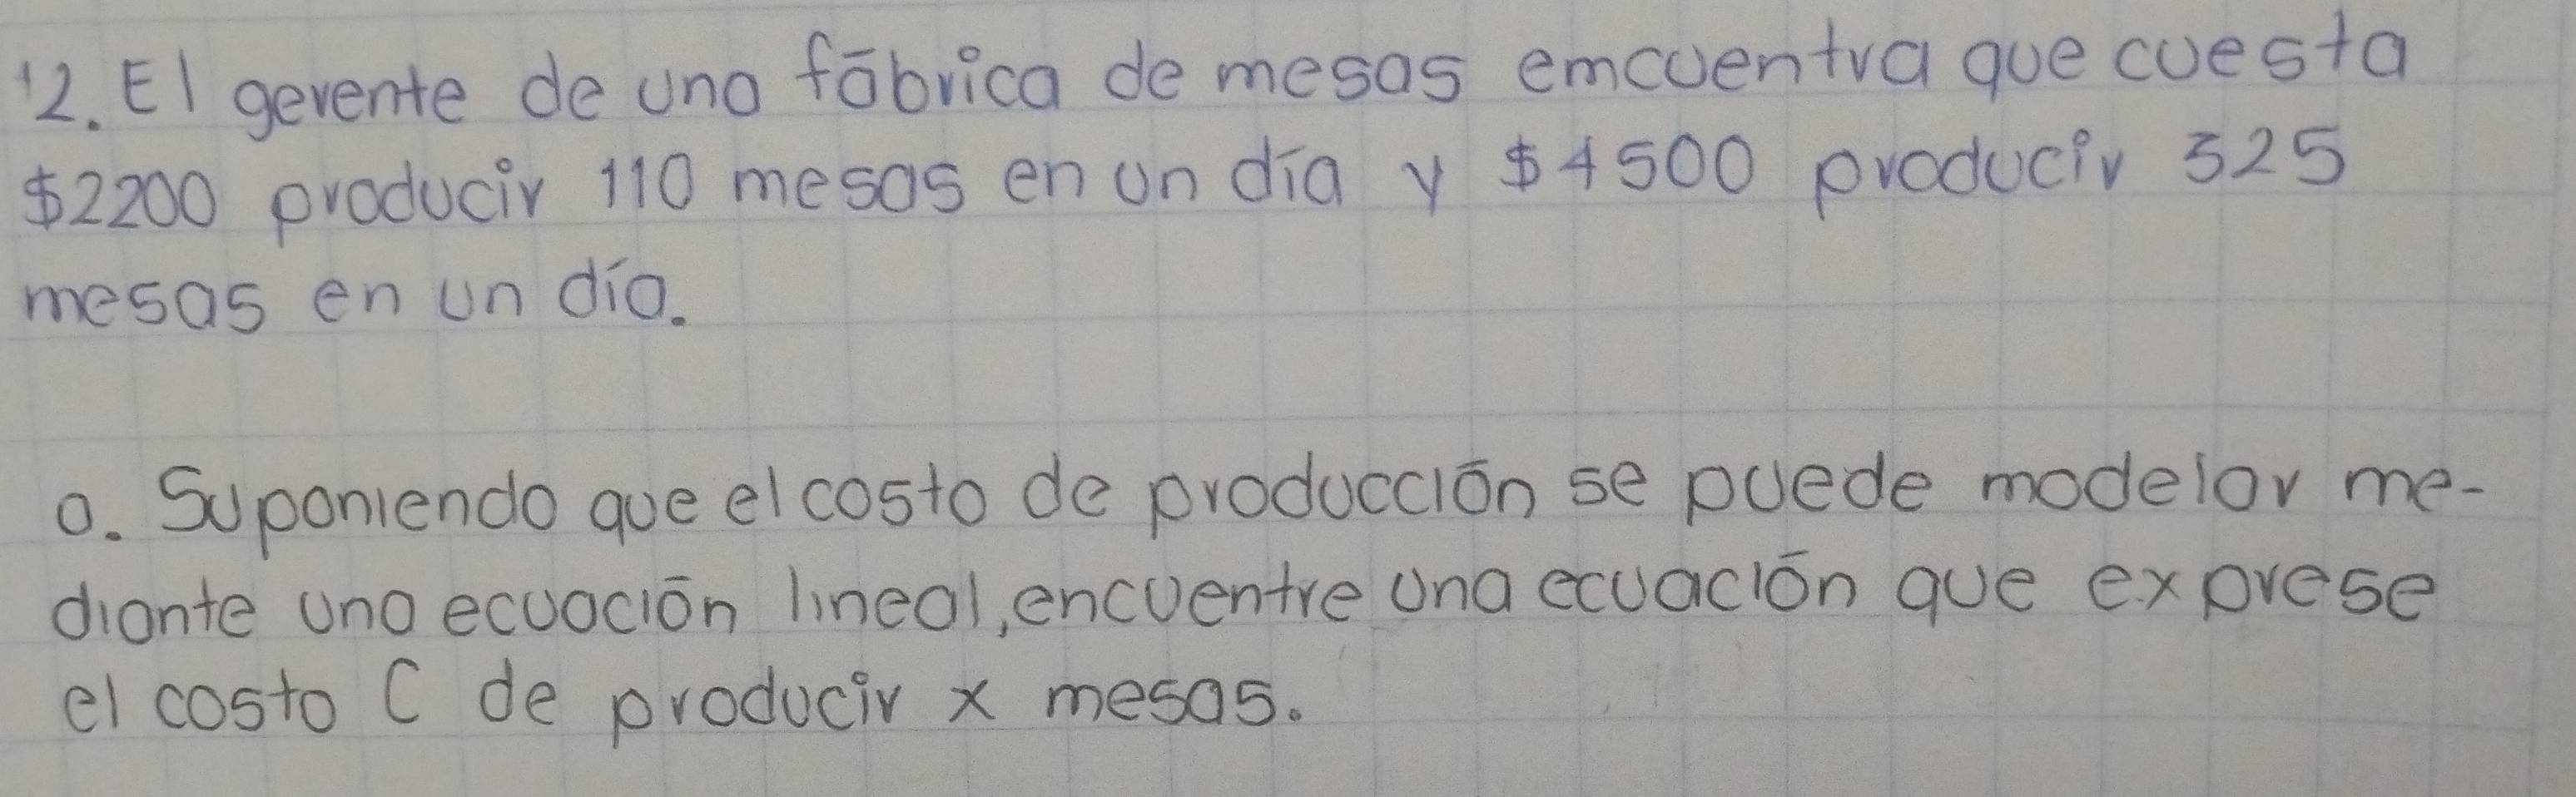 12. El gerente de una fábrica de mesas emcuentra que cuesta
$2200 producir 110 mesas en un día y $4500 producir 325
mesas en un día.
a. Suponiendo que el costo de producción se puede modelar me-
diante una ecuación lineal, encuentre una ecuación que exprese
el costo C de producir x mesas.